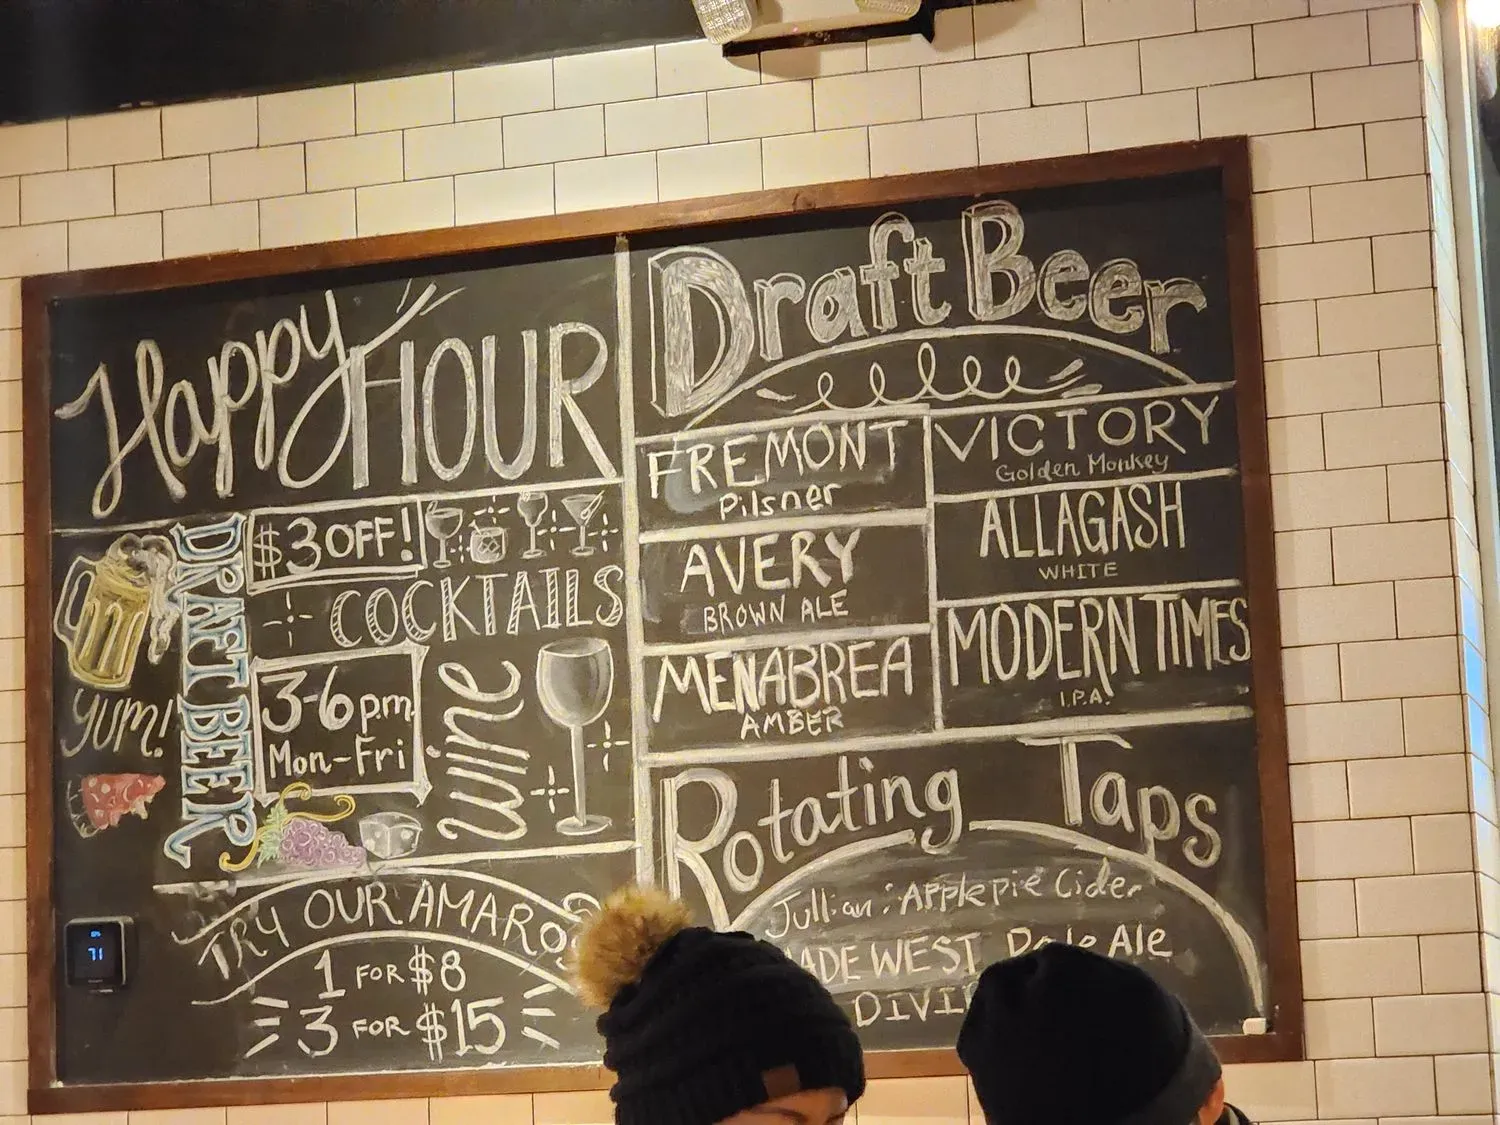 Happy HOUR
DRAFT BEER
$3 OFF!
COCKTAILS
3-6pm
Mon-Fri
wine
yum!
TRY OUR AMAROS
1 FOR $8
3 FOR $15
71
Draft Beer
FREMONT
Pilsner
AVERY
BROWN ALE
MENABREA
AMBER
VICTORY
Golden Monkey
ALLAGASH
WHITE
MODERN TIMES
I.P.A.
Rotating Taps
Jullian: Apple pie Cider
WEST Pale Ale